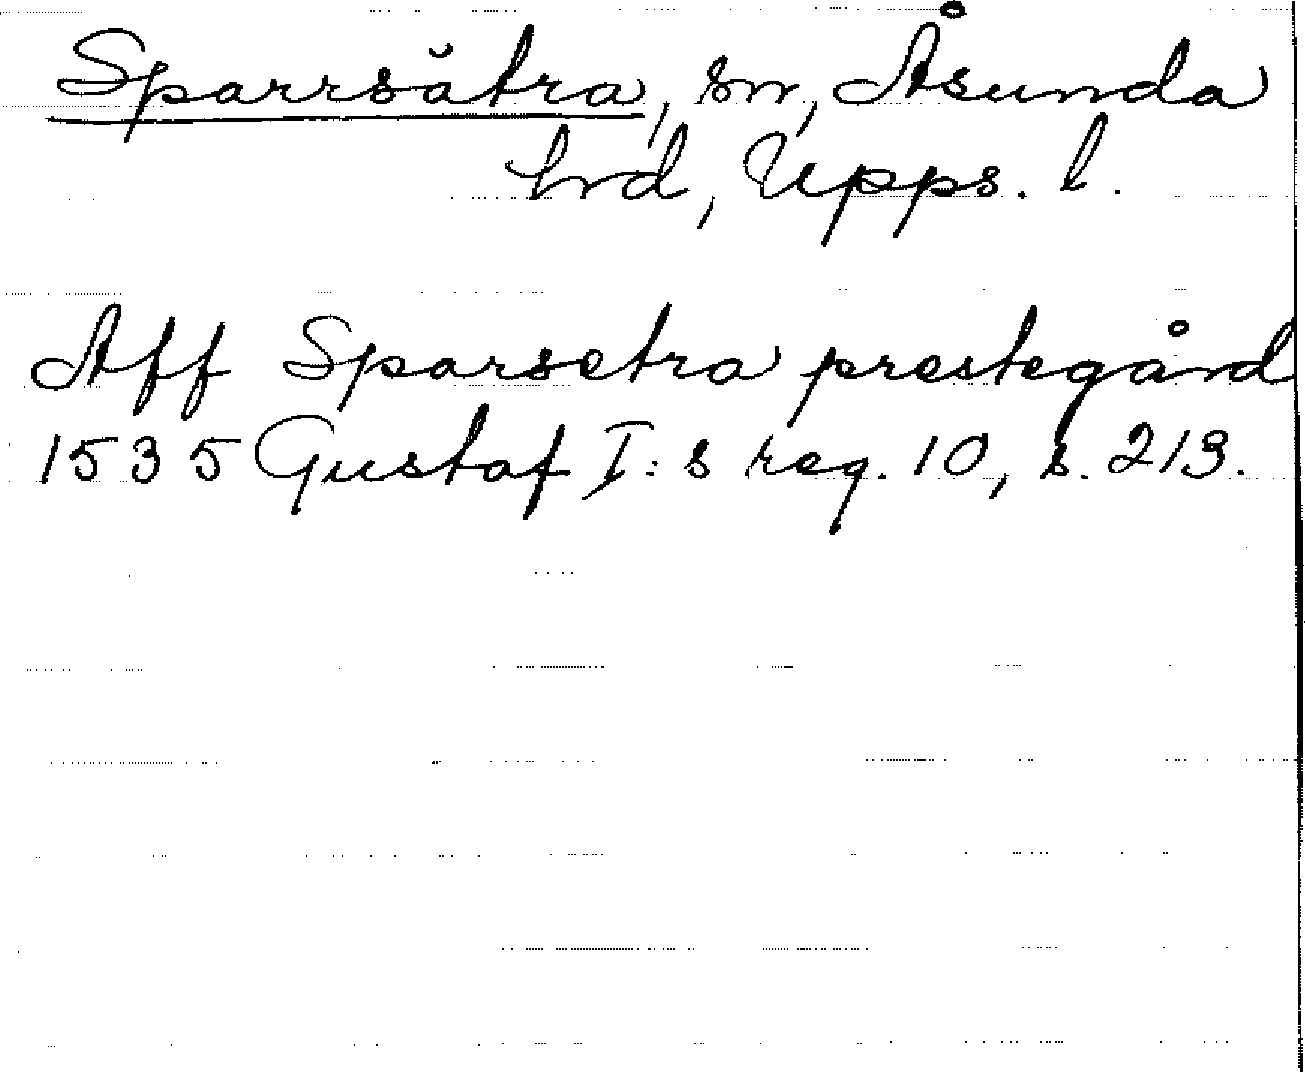 Sparrsätra, sn, Åsunda
hrd, Upps. l.
Aff Sparsetra prestegård
1535 Gustaf I:s reg. 10, s. 213.